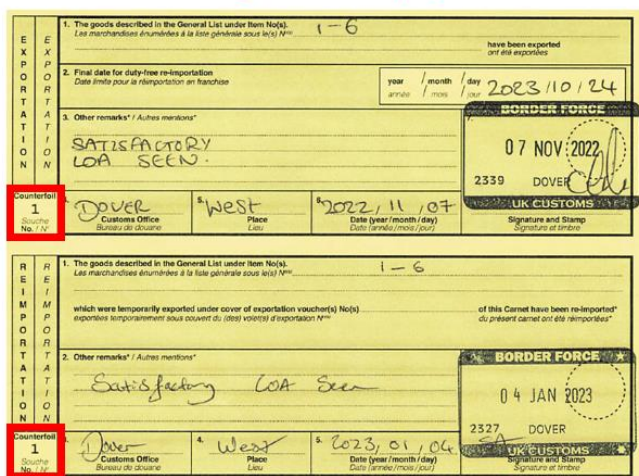 EXPORTATION
EXPORTATION
1. The goods described in the General List under Item No(s). 1-6
Les marchandises énumérées à la liste générale sous le(s) Nᵒ⁽ˢ⁾
have been exported
ont été exportées
2. Final date for duty-free re-importation
Date limite pour la réimportation en franchise
year / month / day 2023/10/24
année / mois / jour
3. Other remarks* / Autres mentions*
SATISFACTORY
LOA SEEN.
BORDER FORCE
07 NOV 2022
2339 DOVER
UK CUSTOMS
Counterfoil
1
Souche
No. / N°
DOVER
Customs Office
Bureau de douane
5. West
Place
Lieu
6. 2022, 11, 07
Date (year/month/day)
Date (année/mois/jour)
Signature and Stamp
Signature et timbre
REIMPORTATION
REIMPORTATION
1. The goods described in the General List under Item No(s). 1-6
Les marchandises énumérées à la liste générale sous le(s) Nᵒ⁽ˢ⁾
which were temporarily exported under cover of exportation voucher(s) No(s)
exportées temporairement sous couvert du (des) volet(s) d'exportation Nᵒ⁽ˢ⁾
of this Carnet have been re-imported*
du présent carnet ont été réimportées*
2. Other remarks* / Autres mentions*
Satisfactory LOA Seen
BORDER FORCE
04 JAN 2023
2327 DOVER
UK CUSTOMS
Counterfoil
1
Souche
No. / N°
3. Dover
Customs Office
Bureau de douane
4. West
Place
Lieu
5. 2023, 01, 04
Date (year/month/day)
Date (année/mois/jour)
Signature and Stamp
Signature et timbre